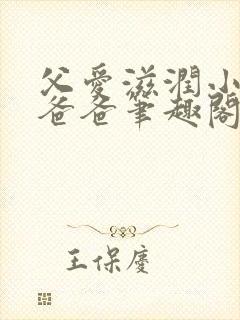 父愛滋潤小
爸爸筆趣閣
王保慶